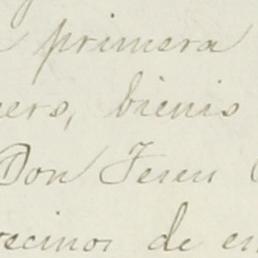 primera
bienis
Don Jesus
vecinos de